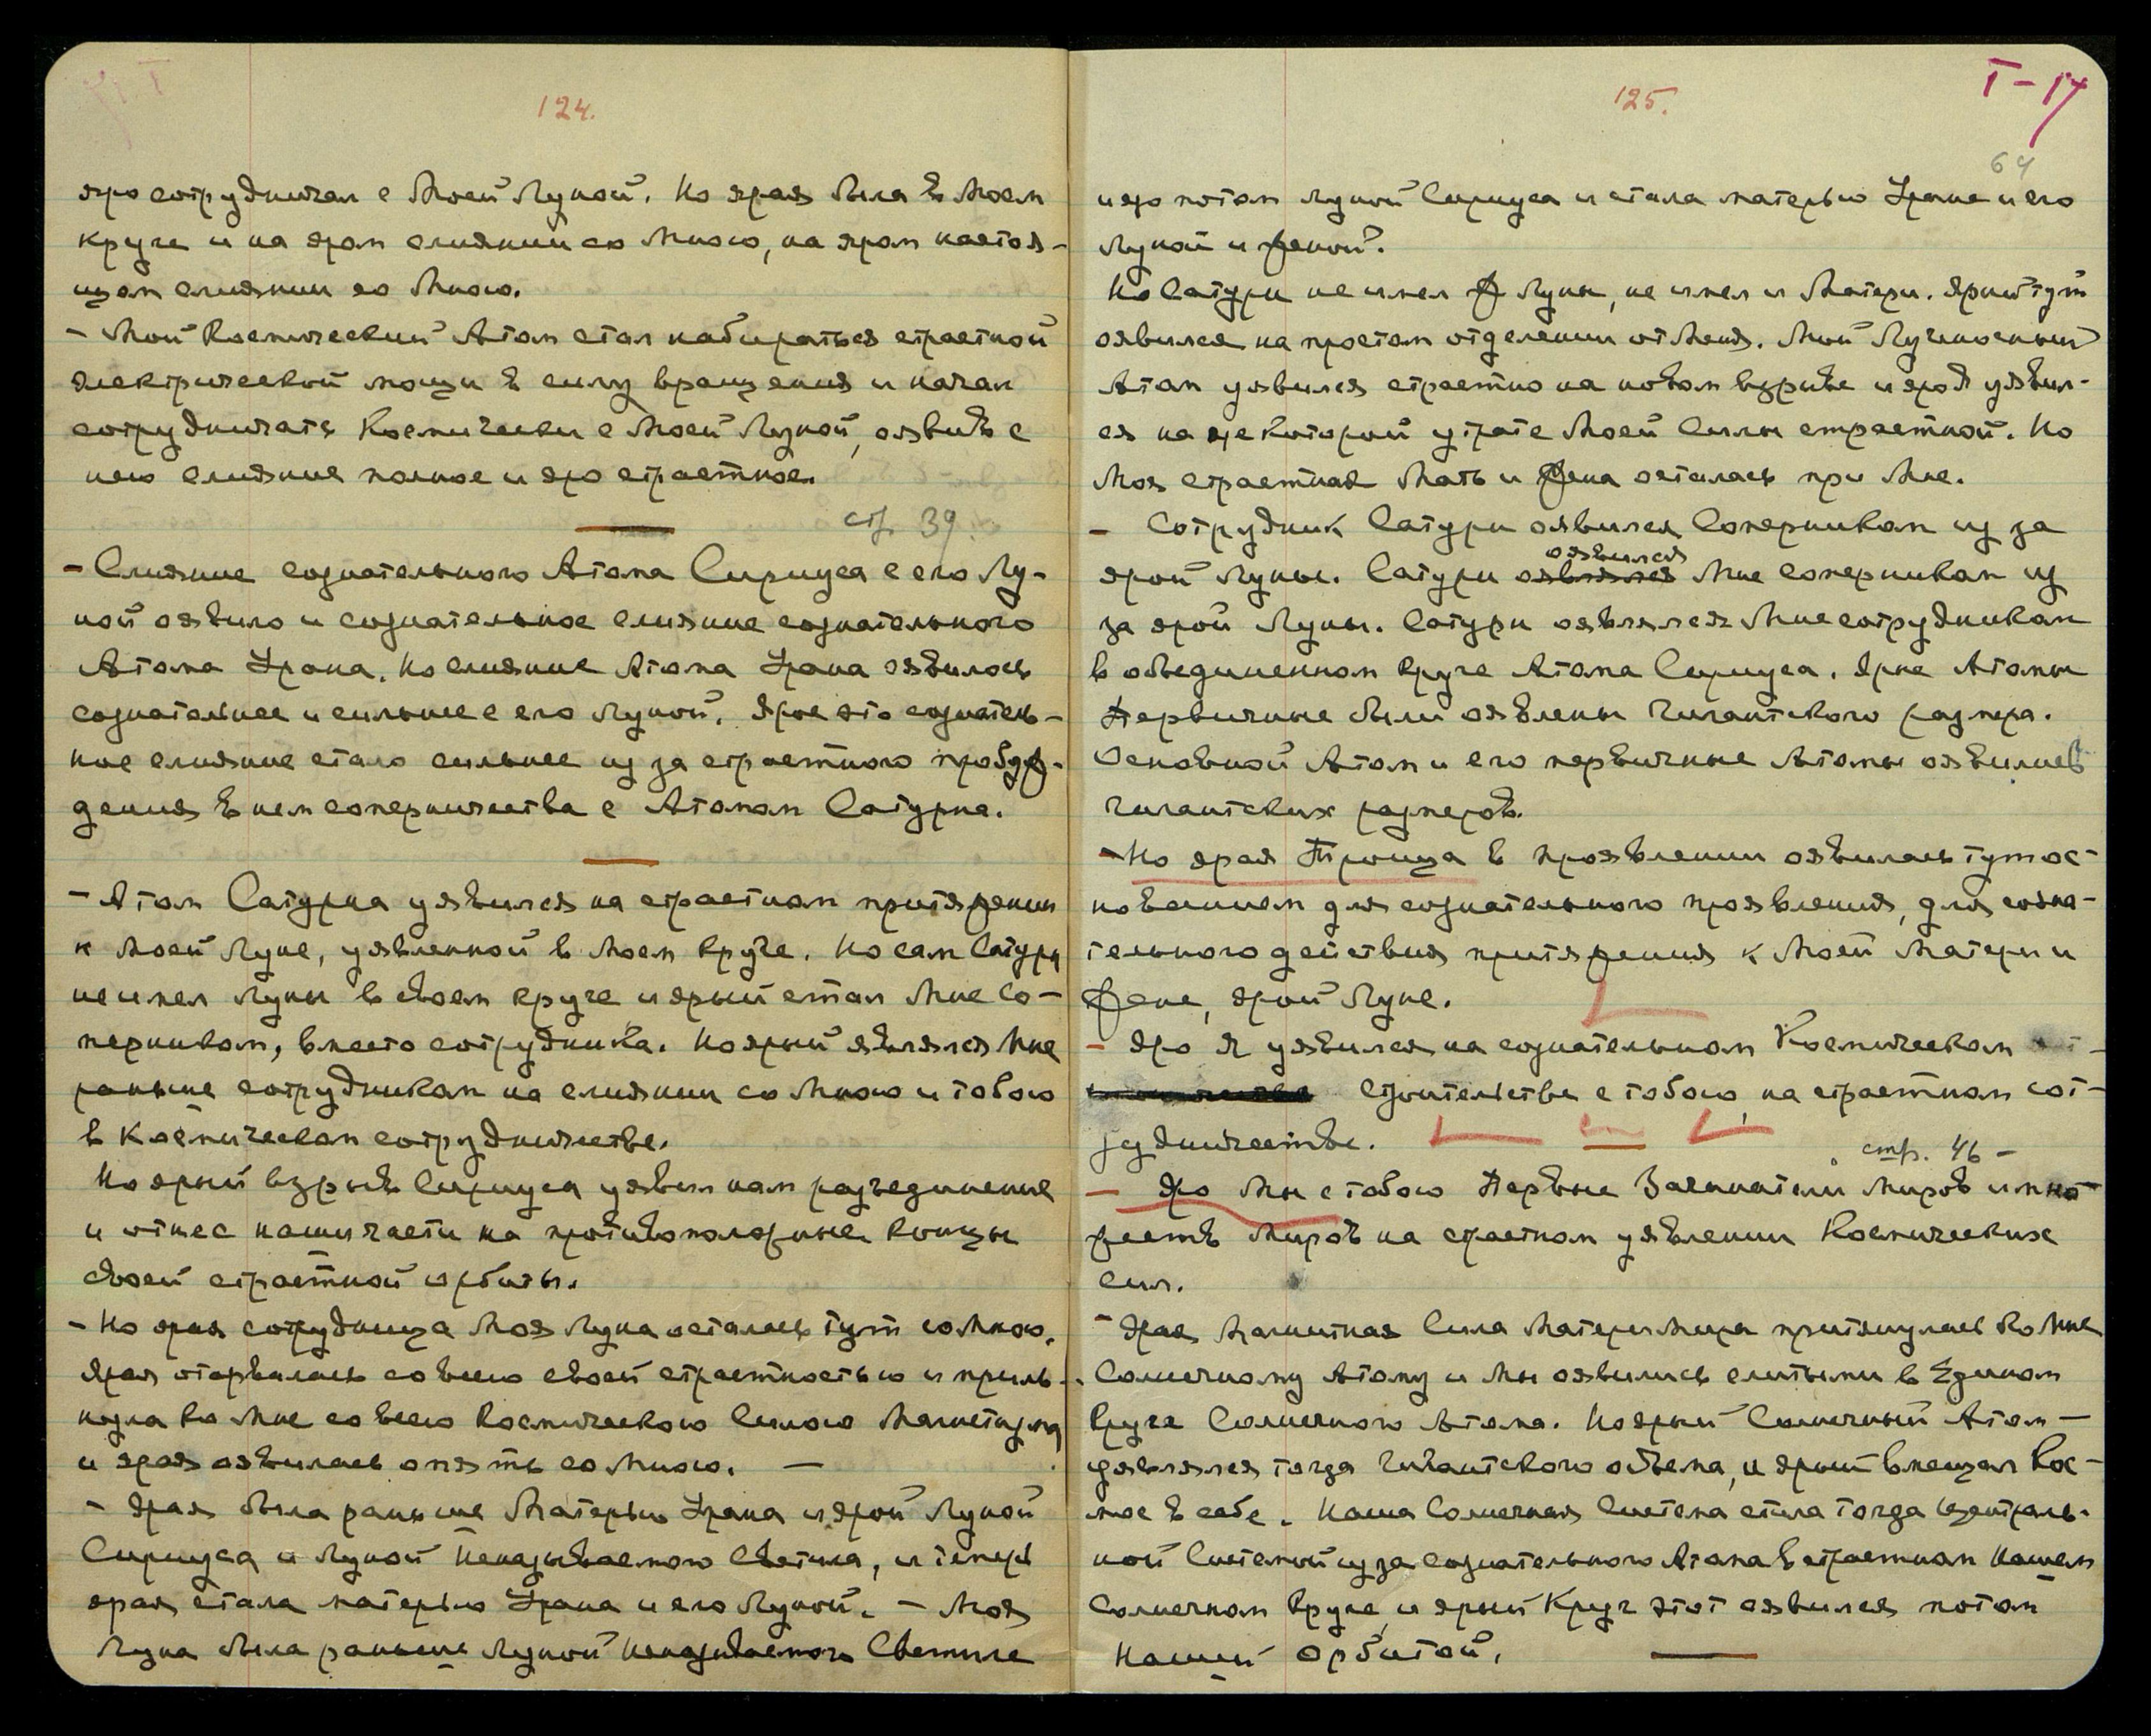 124.
яро сотрудничал с Моей Луной. Но ярая была в Моем
круге и на яром слиянии со Мною, на яром настоя-
щем слиянии со Мною.
- Мой Космический Атом стал набираться страстной
электрической мощи в силу вращения и начал
сотрудничать Космически с Моей Луной, оявив с
нею слияние полное и яро страстное.
стр. 39.
- Слияние сознательного Атома Сириуса с его Лу-
ной оявило и сознательное слияние сознательного
Атома Урана. Но слияние Атома Урана оявилось
сознательнее и сильнее с его Луной. Ярое это сознатель-
ное слияние стало сильнее из за страстного пробуж-
дения в нем соперничества с Атомом Сатурна.
- Атом Сатурна уявился на страстном притяжении
к Моей Луне, уявленной в Моем круге. Но сам Сатурн
не имел Луны в своем круге и ярый стал Мне Со-
перником, вместо сотрудника. Но ярый являлся Мне
раньше сотрудником на слиянии со Мною и тобою
в Космическом сотрудничестве.
Но ярый взрыв Сириуса уявил нам разъединение
и отнес наши части на противоположные концы
своей страстной орбиты.
- Но ярая сотрудница Моя Луна осталась тут со Мною.
Ярая оторвалась со всею своей страстностью и приль-
нула ко Мне со всею Космическою Силою Магнетизма
и ярая оявилась опять со Мною. —
- Ярая была раньше Матерью Урана и ярой Луной
Сириуса и Луной Неназываемого Светила, и теперь
ярая стала матерью Урана и его Луной. - Моя
Луна была раньше Луной Неназываемого Светила
125.
I - 17
64
и яро потом Луной Сириуса и стала матерью Урана и его
Луной и женой.
Но Сатурн не имел Луны, не имел и Матери. Ярый тут
оявился на простом отделении от Меня. Мой Лученосный
Атом уявился страстно на новом взрыве и яро Я уявил-
ся на некоторой утрате Моей Силы страстной. Но
Моя страстная Мать и Жена осталась при Мне.
- Сотрудник Сатурн оявился Соперником из за
оявился
ярой Луны. Сатурн оявлялся Мне соперником из
за ярой Луны. Сатурн оявлялся Мне сотрудником
в объединенном круге Атома Сириуса. Ярые Атомы
Первичные были оявлены Гигантского размера.
Основной Атом и его первичные Атомы оявились
гигантских размеров.
- Но ярая Троица в проявлении оявилась тут ос-
нованием для сознательного проявления, для созна-
тельного действия притяжения к Моей Матери и
Жене, ярой Луне.
- Яро Я уявился на сознательном Космическом
Строительстве с тобою, на страстном сот-
рудничестве.
стр. 46 -
- Яро Мы с тобою Первые Зачинатели Миров и мно-
жеств Миров на страстном уявлении Космических
сил.
- Ярая Магнитная Сила Матери Мира притянулась ко Мне
Солнечному Атому и Мы оявились слитыми в Едином
Круге Солнечного Атома. Но ярый Солнечный Атом -
уявлялся тогда Гигантского объема, и ярый вмещал Кос-
мос в себе. Наша Солнечная Система стала тогда Централь-
ной Системой из за сознательного Атома в страстном Нашем
Солнечном Круге, и ярый Круг этот оявился потом
Нашей орбитой.